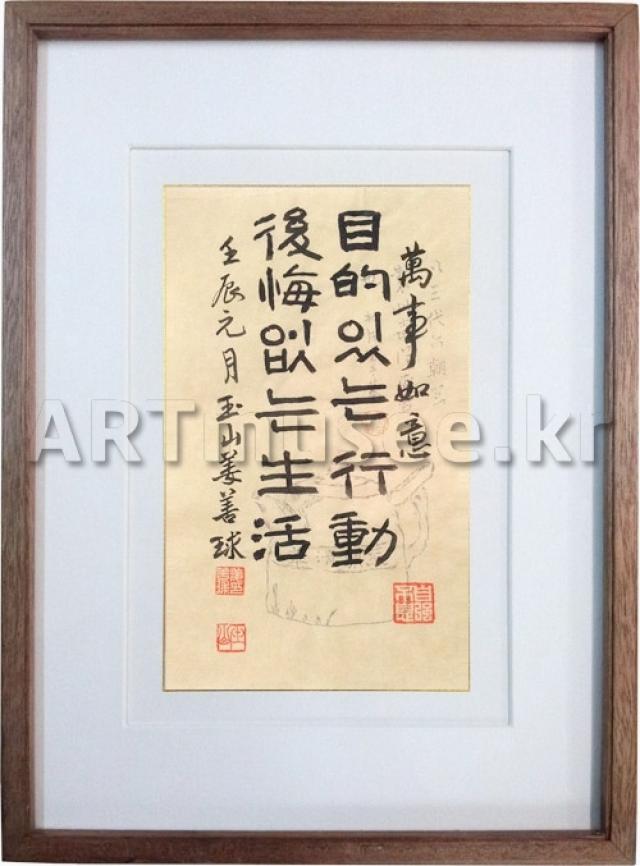 萬事如意
目的있는行動
後悔없는生活
壬辰元月玉山姜善球
ARTmusee.kr